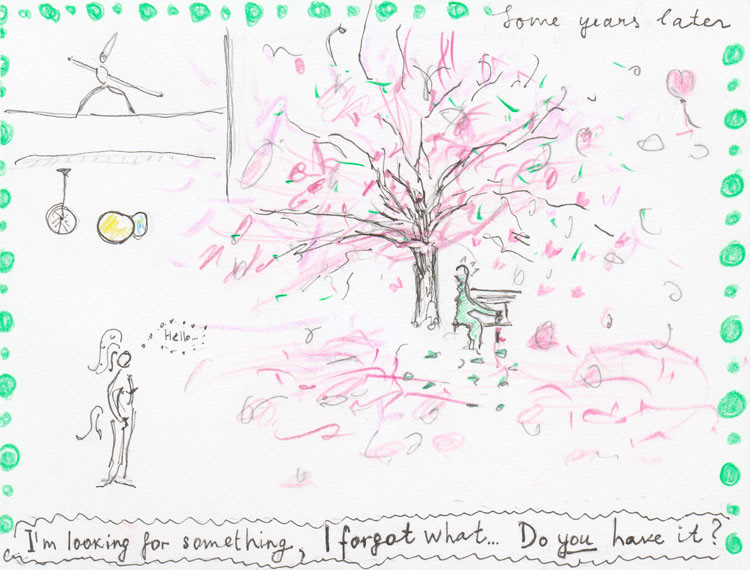 Some years later
Hello...
I'm looking for something, I forgot what... Do you have it?